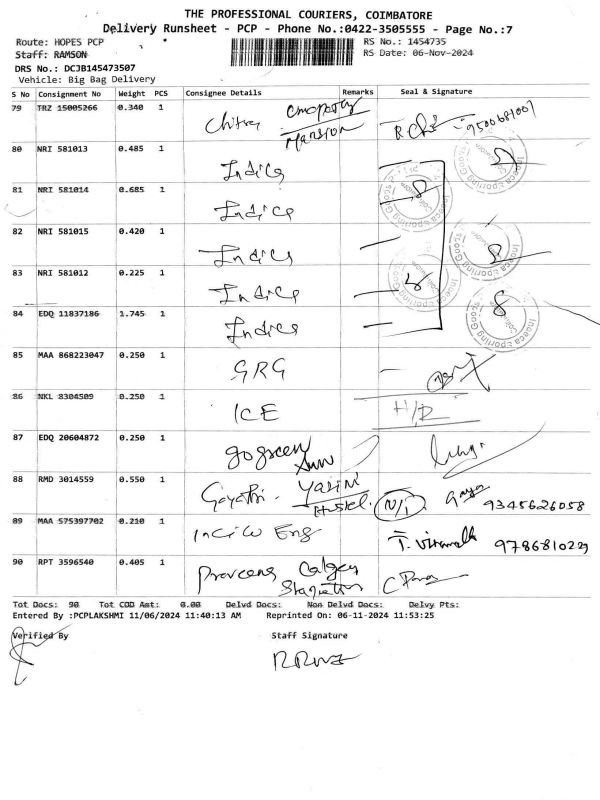 THE PROFESSIONAL COURIERS, COIMBATORE
Delivery Runsheet - PCP - Phone No.:0422-3505555 - Page No.:7
Route: HOPES PCP
RS No.: 1454735
Staff: RAMSON
RS Date: 06-Nov-2024
DRS No.: DCJB145473507
Vehicle: Big Bag Delivery
S No Consignment No Weight PCS Consignee Details Remarks Seal & Signature
79 TRZ 15005266 0.340 1 Chitra Mansion 9500681007
80 NRI 581013 0.485 1 Indica
81 NRI 581014 0.685 1 Indica
82 NRI 581015 0.420 1 Indica
83 NRI 581012 0.225 1 Indica
84 EDQ 11837186 1.745 1 Indica
85 MAA 868223047 0.250 1 GRG
86 NKL 8304509 0.250 1 ICE H/R
87 EDQ 20604872 0.250 1 go green
88 RMD 3014559 0.550 1 Gayathri - N/1 Gaya 9345626058
89 MAA 575397702 0.210 1 Eng 9786810229
90 RPT 3596540 0.405 1 Praveena
Tot Docs: 90 Tot COD Amt: 0.00 Delvd Docs: Non Delvd Docs: Delvy Pts:
Entered By :PCPLAKSHMI 11/06/2024 11:40:13 AM Reprinted On: 06-11-2024 11:53:25
Verified By
Staff Signature